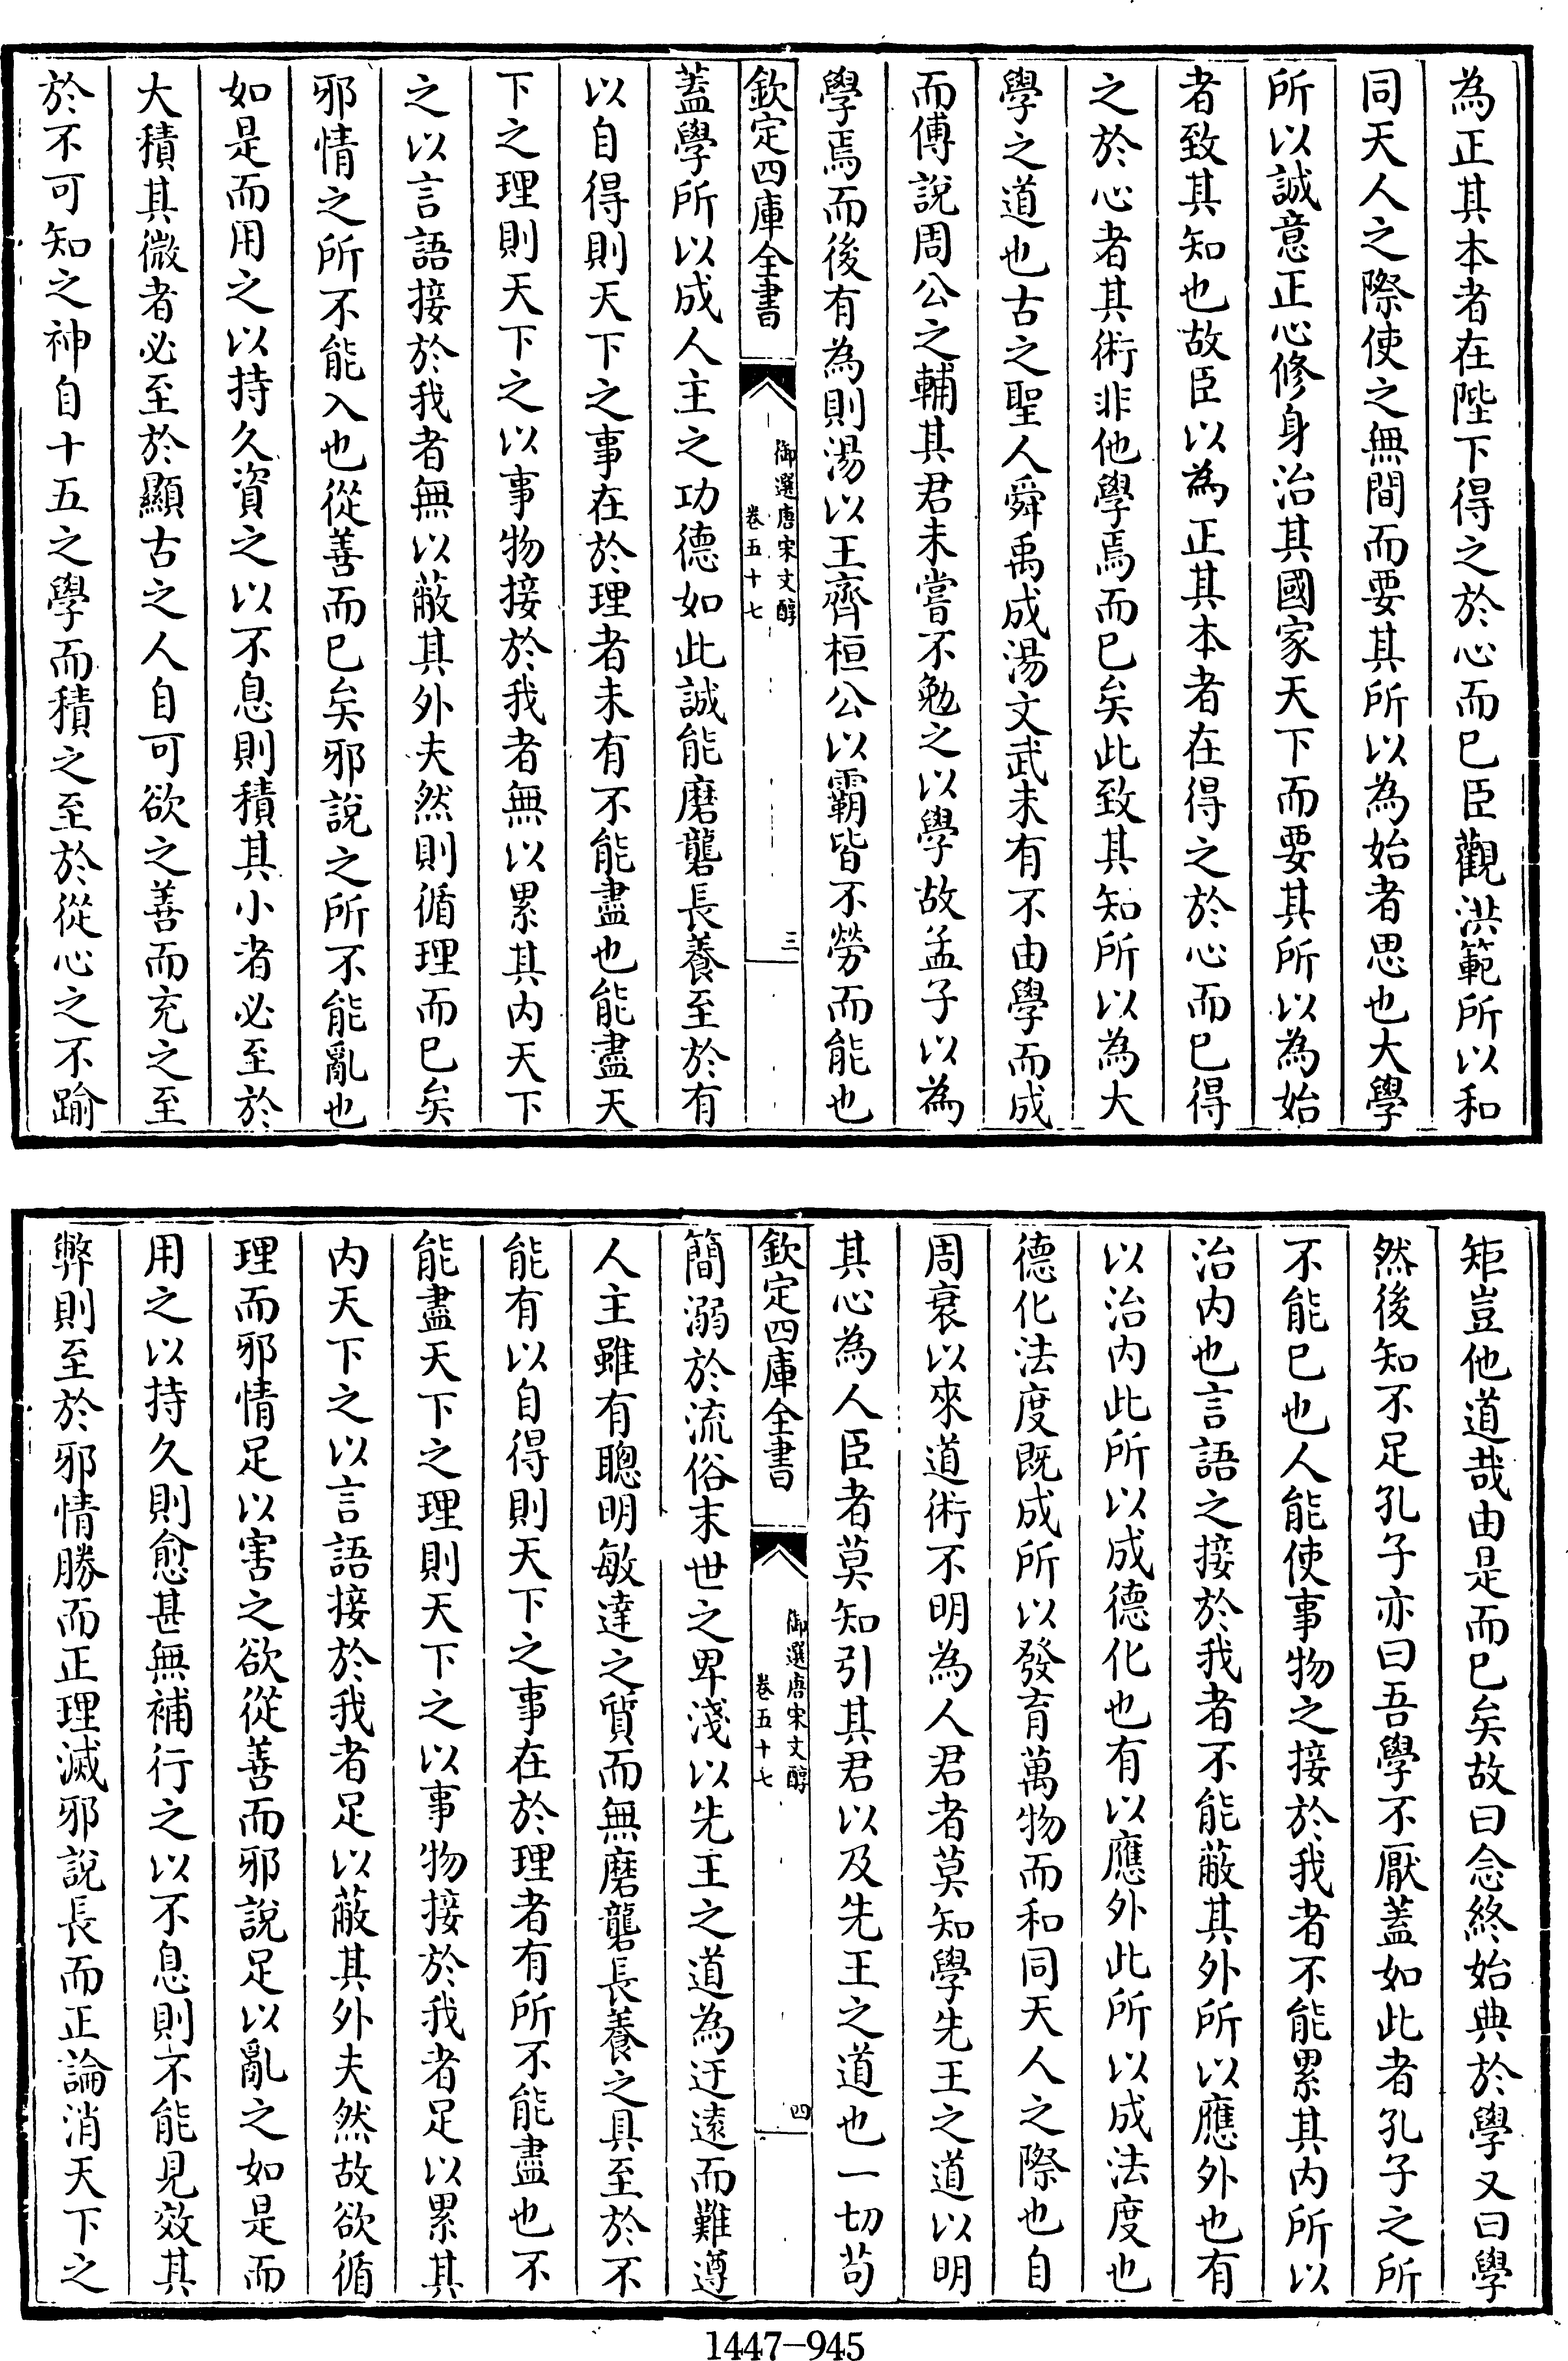 為正其本者在陛下得之於心而已臣觀洪範所以和
同天人之際使之無間而要其所以為始者思也大學
所以誠意正心修身治其國家天下而要其所以為始
者致其知也故臣以為正其本者在得之於心而已得
之於心者其術非他學焉而已矣此致其知所以為大
學之道也古之聖人舜禹成湯文武未有不由學而成
而傅說周公之輔其君未嘗不勉之以學故孟子以為
學焉而後有為則湯以王齊桓公以霸皆不勞而能也
欽定四庫全書
御選唐宋文醇
卷五十七
三
蓋學所以成人主之功德如此誠能磨礱長養至於有
以自得則天下之事在於理者未有不能盡也能盡天
下之理則天下之以事物接於我者無以累其内天下
之以言語接於我者無以蔽其外夫然則循理而已矣
邪情之所不能入也從善而已矣邪說之所不能亂也
如是而用之以持久資之以不息則積其小者必至於
大積其微者必至於顯古之人自可欲之善而充之至
於不可知之神自十五之學而積之至於從心之不踰
矩豈他道哉由是而已矣故曰念終始典於學又曰學
然後知不足孔子亦曰吾學不厭蓋如此者孔子之所
不能已也人能使事物之接於我者不能累其内所以
治内也言語之接於我者不能蔽其外所以應外也有
以治内此所以成德化也有以應外此所以成法度也
德化法度既成所以發育萬物而和同天人之際也自
周衰以來道術不明為人君者莫知學先王之道以明
其心為人臣者莫知引其君以及先王之道也一切苟
欽定四庫全書
御選唐宋文醇
卷五十七
四
簡溺於流俗末世之卑淺以先王之道為迂遠而難遵
人主雖有聰明敏達之質而無磨礱長養之具至於不
能有以自得則天下之事在於理者有所不能盡也不
能盡天下之理則天下之以事物接於我者足以累其
内天下之以言語接於我者足以蔽其外夫然故欲循
理而邪情足以害之欲從善而邪說足以亂之如是而
用之以持久則愈甚無補行之以不息則不能見效其
弊則至於邪情勝而正理滅邪說長而正論消天下之
1447-945